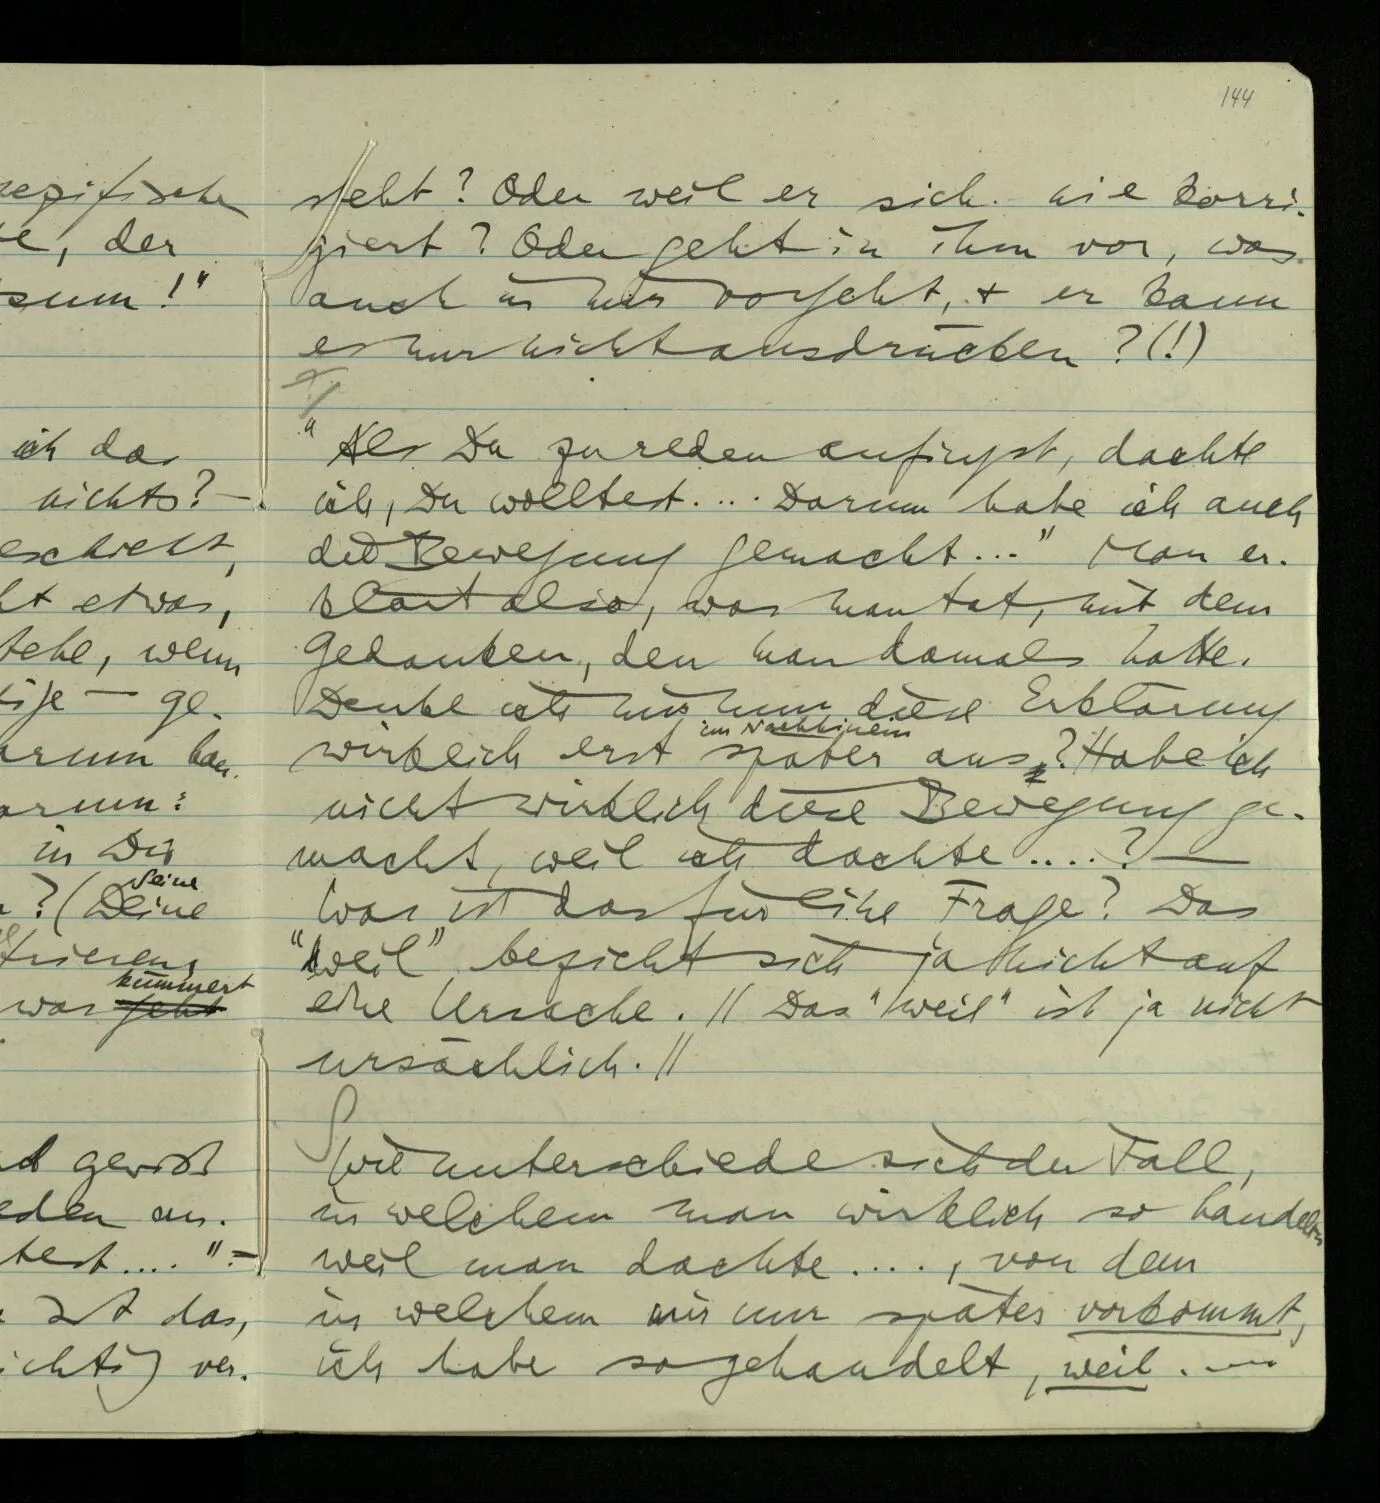 144
steht? Oder weil er sich nie korri-
giert? Oder geht in ihm vor, was
auch in mir vorgeht, + er kann
es nur nicht ausdrücken? (!)
"Als Du zu reden anfingst, dachte
ich, Du wolltest.... Darum habe ich auch
die Bewegung gemacht..." Man er-
klärt also, was man tat, mit dem
Gedanken, den man damals hatte.
Denke ich mir nun diese Erklärung
im Nachhinein
wirklich erst später aus? Habe ich
nicht wirklich diese Bewegung ge-
macht, weil ich dachte ....? —
Was ist das für eine Frage? Das
"weil" bezieht sich ja nicht auf
eine Ursache. // Das "weil" ist ja nicht
ursächlich. //
Wie unterschiede sich der Fall,
in welchem man wirklich so handelt,
weil man dachte ...., von dem
in welchem mir nur später vorkommt,
ich habe so gehandelt, weil ....
zezifische
, der
sum!"
ich das
nichts? —.
eschieht,
ht etwas,
tehe, wenn
— ge-
arum han-
arum:
in Dir
seine
? (Deine
trieren,
kümmert
was geht
gewiß
eden an-
test...." —
ist das,
ichts) ver-